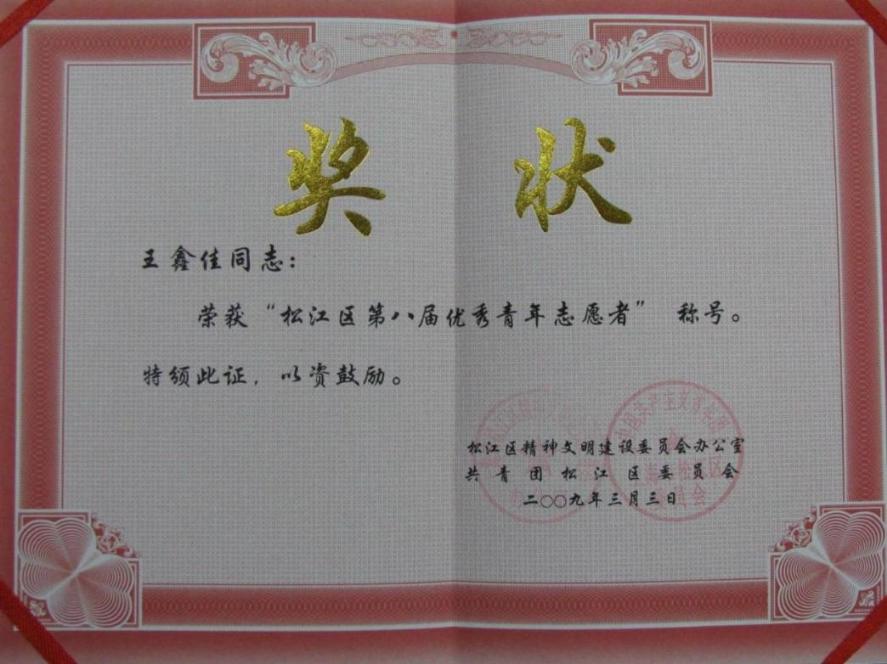 奖状
王鑫佳同志：
荣获“松江区第八届优秀青年志愿者” 称号。
特颁此证，以资鼓励。
松江区精神文明建设委员会办公室
共青团松江区委员会
二〇〇九年三月三日